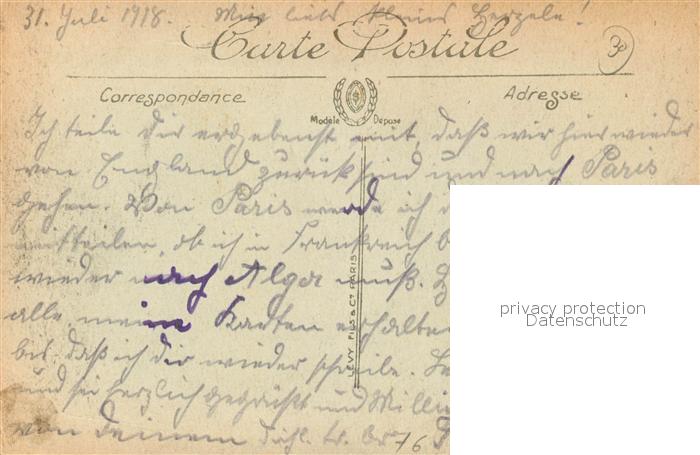 31. Juli 1918. Mein liebs kleins Herzele!
Carte Postale
3
Correspondance
Adresse
Modèle Déposé
Ich teile dir ergebenst mit, daß wir hier wieder
von England zurück sind und nach Paris
gehen. Von Paris werde ich d
mitteilen, ob ich in Frankreich b
wieder nach Alger muß.
alle meine Karten erhalten
bis, daß ich dir wieder schreibe.
und sei herzlich gegrüßt und Milli
von deinem
76
LEVY FILS & Cⁱᵉ PARIS
privacy protection
Datenschutz